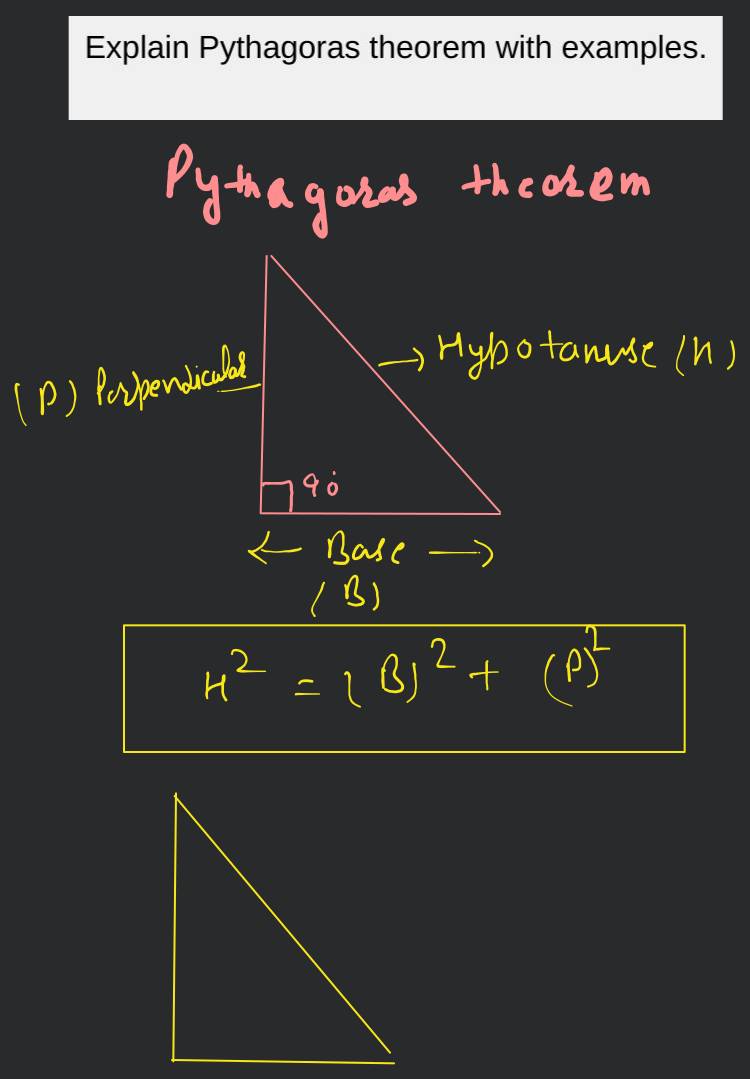 Explain Pythagoras theorem with examples.
Pythagoras theorem
(P) Perpendicular
→ Hypotanuse (H)
90°
← Base →
(B)
H² = (B)² + (P)²